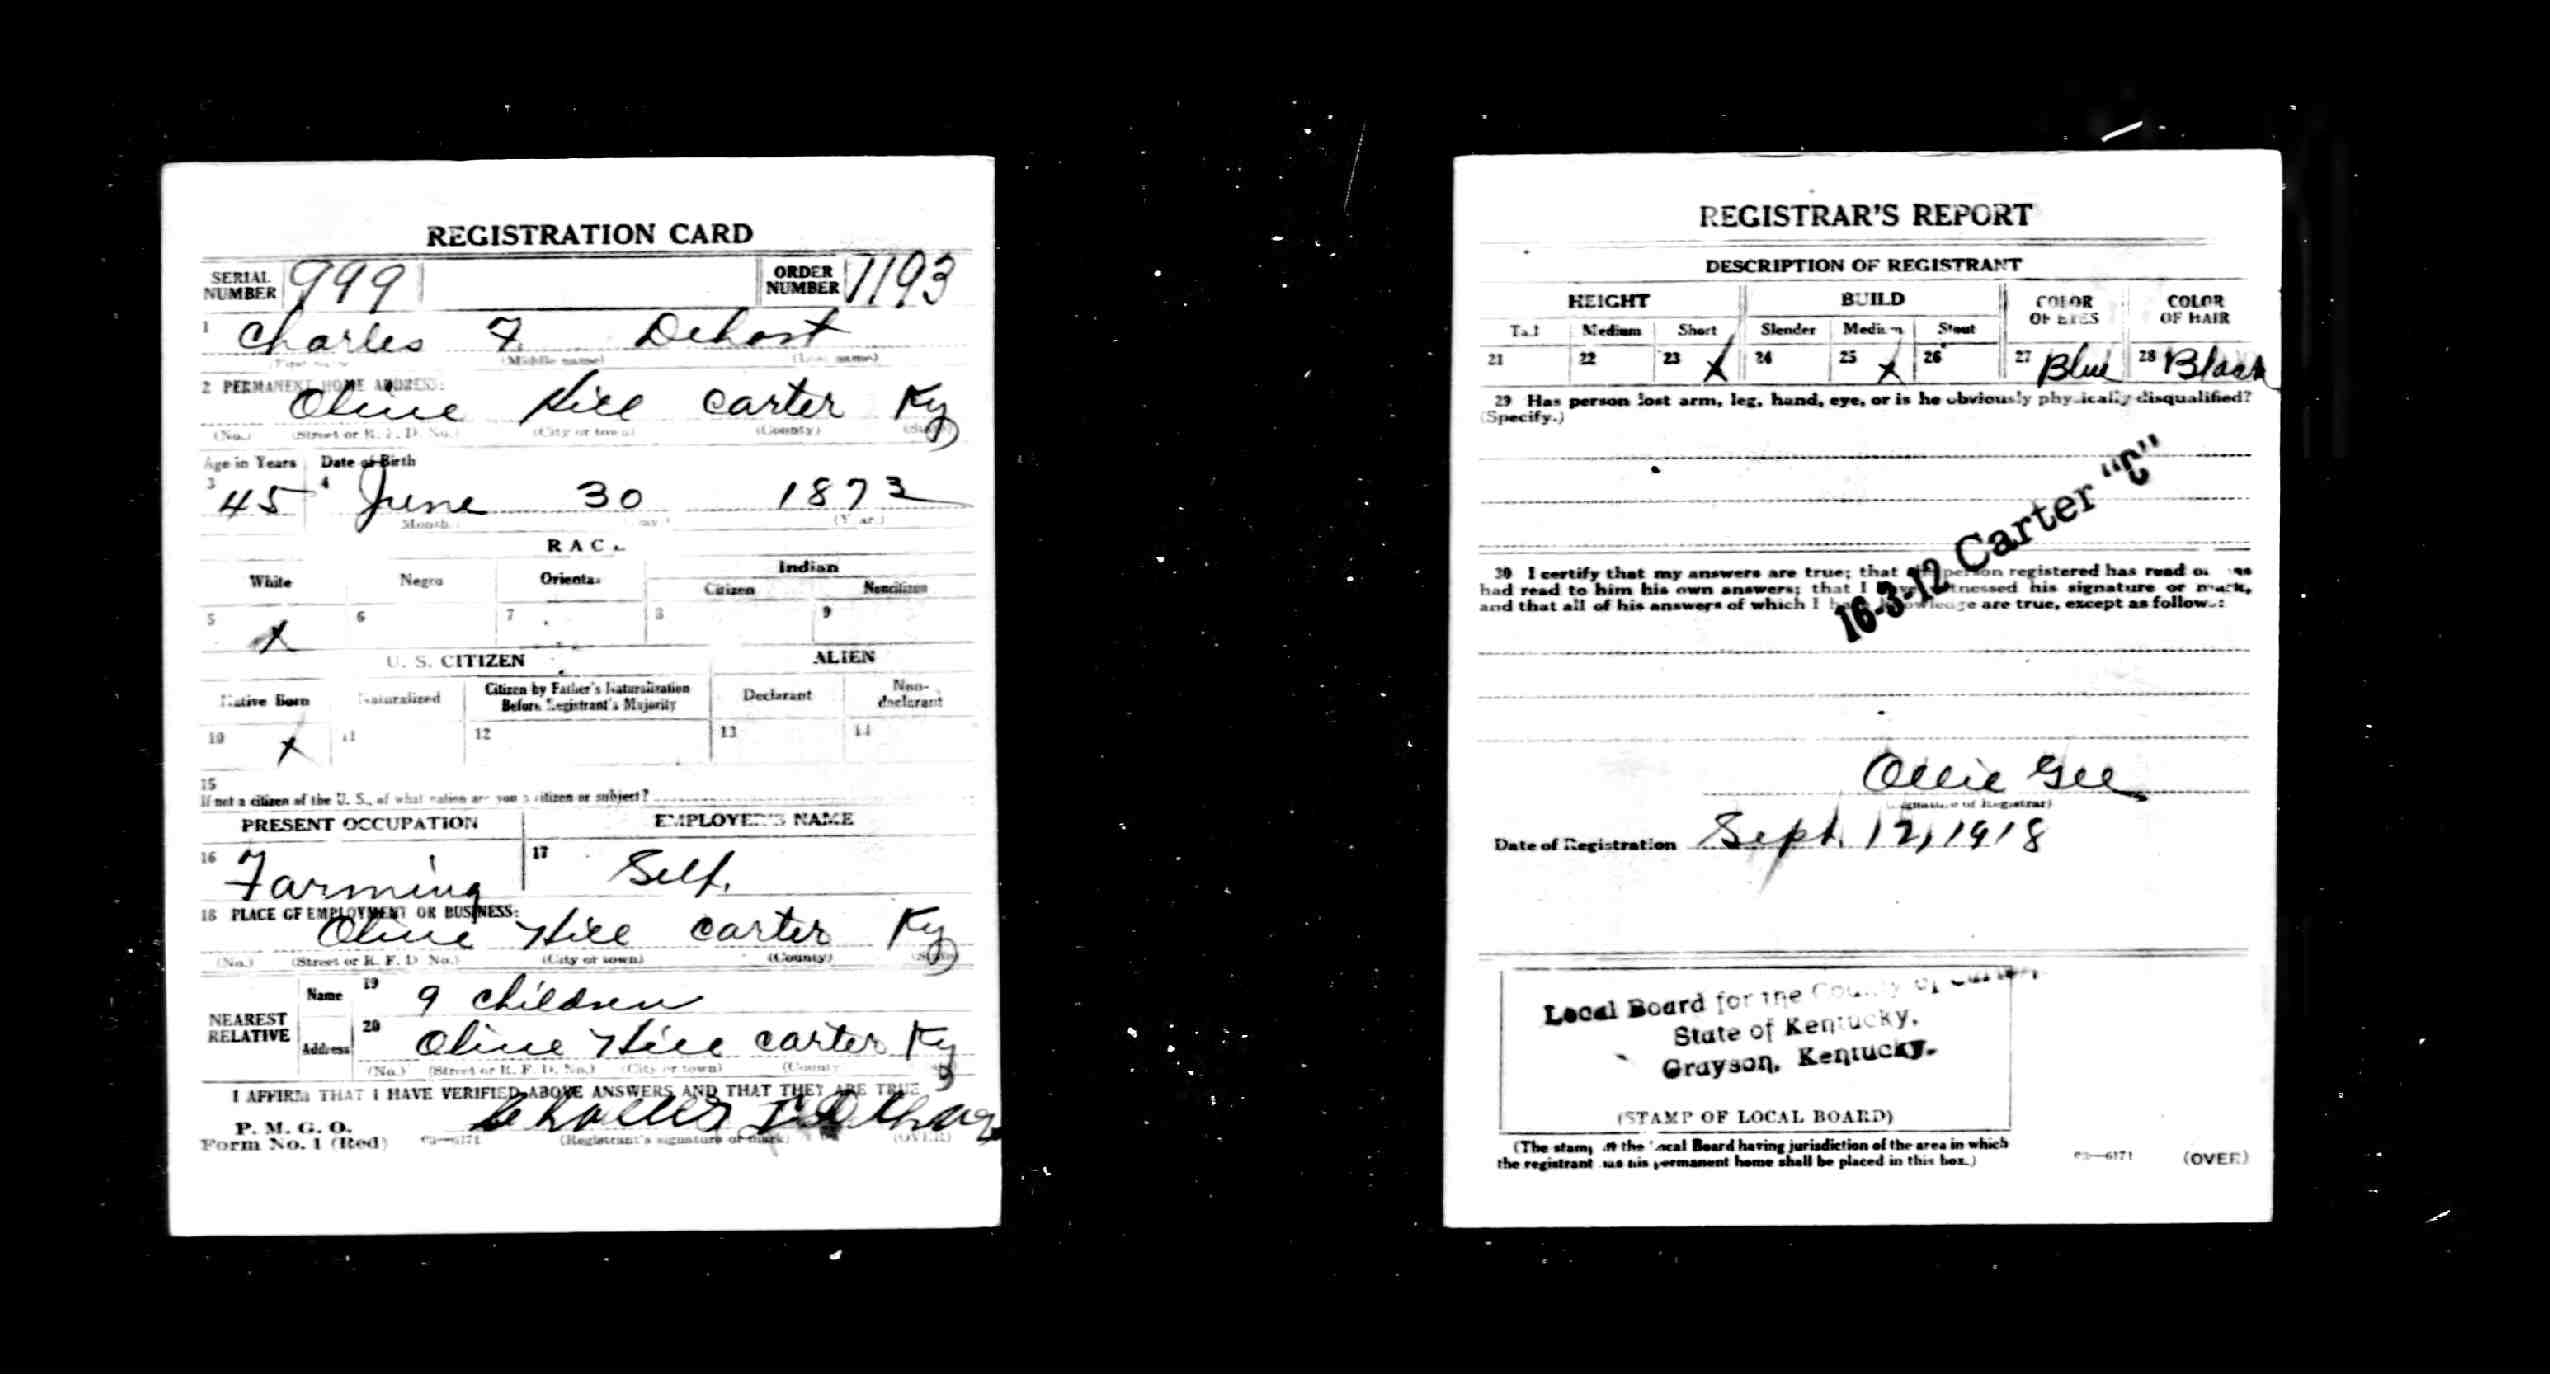 REGISTRATION CARD
SERIAL NUMBER 999 ORDER NUMBER 1193
1 Charles F. Dehart
(First name) (Middle name) (Last name)
2 PERMANENT HOME ADDRESS:
Olive Hill Carter Ky
(No.) (Street or R. F. D. No.) (City or town) (County) (State)
Age in Years Date of Birth
3 45 4 June 30 1873
(Month.) (Day.) (Year.)
RACE
White Negro Oriental Indian
Citizen Noncitizen
5 X 6 7 8 9
U. S. CITIZEN ALIEN
Native Born Naturalized Citizen by Father's Naturalization Before Registrant's Majority Declarant Non-declarant
10 X 11 12 13 14
15
If not a citizen of the U. S., of what nation are you a citizen or subject?
PRESENT OCCUPATION EMPLOYER'S NAME
16 Farming 17 Self.
18 PLACE OF EMPLOYMENT OR BUSINESS:
Olive Hill Carter Ky
(No.) (Street or R. F. D. No.) (City or town) (County) (State)
NEAREST RELATIVE Name 19 9 children
Address 20 Olive Hill Carter Ky
(No.) (Street or R. F. D. No.) (City or town) (County)
I AFFIRM THAT I HAVE VERIFIED ABOVE ANSWERS AND THAT THEY ARE TRUE
P. M. G. O.
Form No. 1 (Red) 03—6171 (Registrant's signature or mark) (OVER)
REGISTRAR'S REPORT
DESCRIPTION OF REGISTRANT
HEIGHT BUILD COLOR OF EYES COLOR OF HAIR
Tall Medium Short Slender Medium Stout
21 22 23 X 24 25 X 26 27 Blue 28 Black
29 Has person lost arm, leg, hand, eye, or is he obviously physically disqualified?
(Specify.)
16-3-12 Carter "C"
30 I certify that my answers are true; that the person registered has read or has
had read to him his own answers; that I have witnessed his signature or mark,
and that all of his answers of which I have knowledge are true, except as follows:
Ollie Gee
(Signature of Registrar)
Date of Registration Sept. 12, 1918
Local Board for the County of Carter,
State of Kentucky,
Grayson, Kentucky.
(STAMP OF LOCAL BOARD)
(The stamp of the Local Board having jurisdiction of the area in which
the registrant has his permanent home shall be placed in this box.)
03—6171 (OVER)